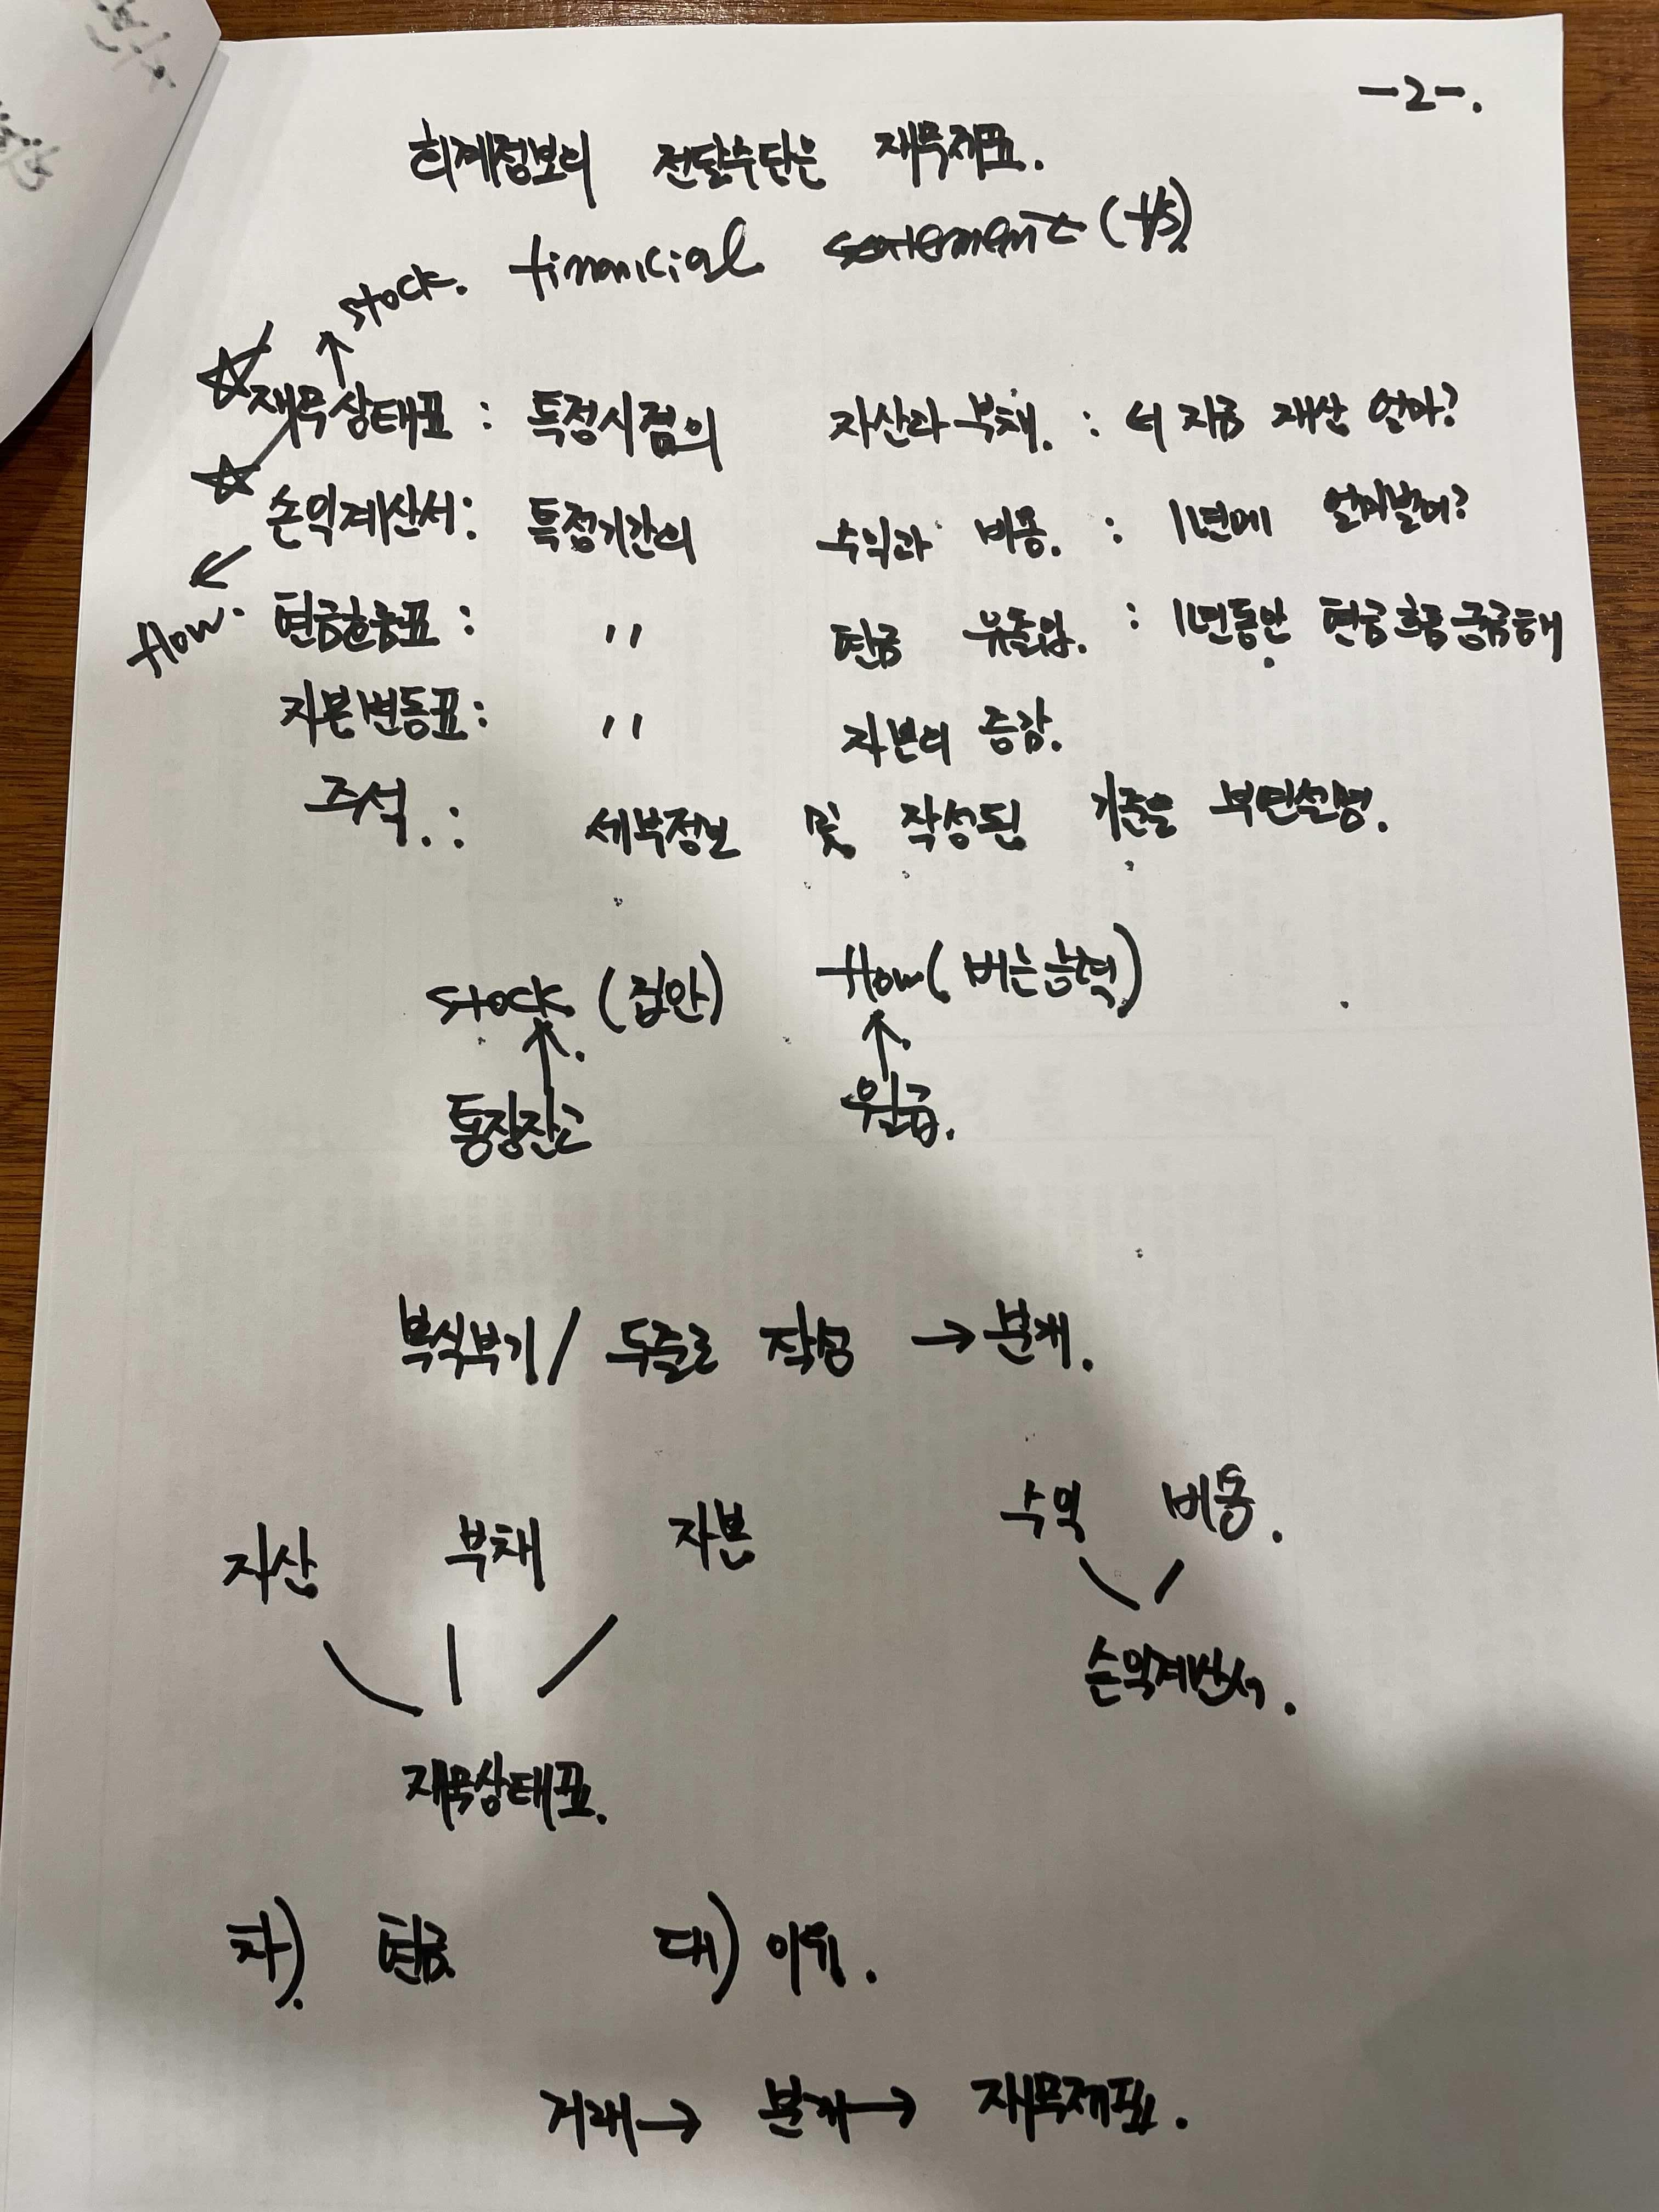 -2-.
회계정보의 전달수단은 재무제표.
financial statement (f/s)
stock.
☆ 재무상태표 : 특정시점의 자산과 부채. : 너 지금 재산 얼마?
☆ 손익계산서 : 특정기간의 수익과 비용. : 1년에 얼마벌어?
flow.
현금흐름표 : 〃 현금 유출입. : 1년동안 현금흐름 궁금해
자본변동표 : 〃 자본의 증감.
주석. : 세부정보 및 작성된 기준을 부연설명.
stock (집안) flow (버는능력)
↑ ↑
통장잔고 월급.
복식부기 / 두줄로 작성 → 분개.
자산 부채 자본 수익 비용.
손익계산서.
재무상태표.
차). 현금 대) 이유.
거래 → 분개 → 재무제표.